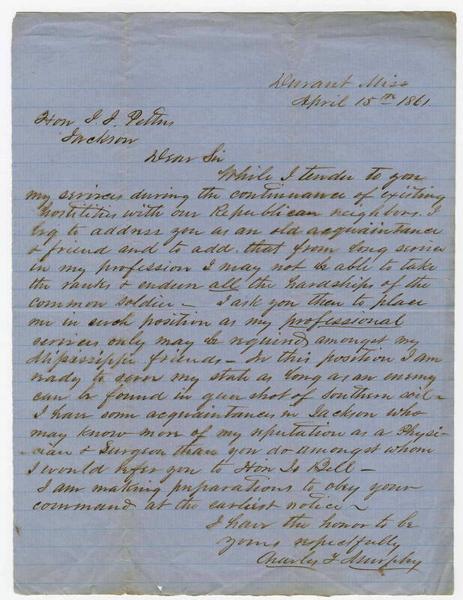 Durant Miss
April 15th 1861
Hon J. J. Pettus
Jackson
Dear Sir
While I tender to you
my services during the continuance of existing
hostilities with our Republican neighbors. I
beg to address you as an old acquaintance
& friend and to add that from long service
in my profession I may not be able to take
the ranks & endure all the hardships of the
common soldier – I ask you then to place
me in such position as my professional
services only may be required amongst my
Mississippi friends – In this position I am
ready to serve my state as long as an enemy
can be found in gun shot of southern soil –
I have some acquaintances in Jackson who
may know more of my reputation as a Physi-
-cian & Surgeon than you do amongst whom
I would refer you to Hon Hill –
I am making preparations to obey your
command at the earliest notice –
I have the honor to be
yours respectfully
Charles F Murphy